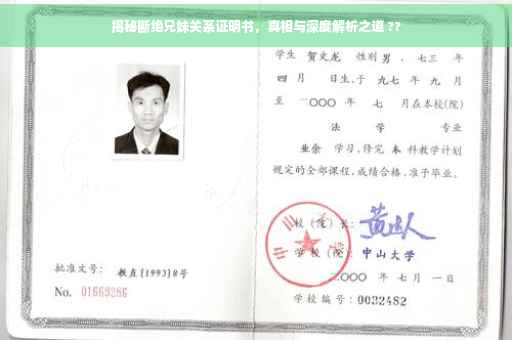 揭秘断绝兄妹关系证明书，真相与深度解析之道 ??
学生 贺文龙 性别 男 、七三 年
四 月 日生,于 九七 年 九 月
至 二〇〇〇 年 七 月在本校(院)
法 学 专业
业余 学习,修完 本 科教学计划
规定的全部课程,成绩合格,准予毕业。
校 (院) 长:
学 校 (院): 中山大学
二〇〇〇 年 七 月 一 日
批准文号: 教直[1993]8号
No. 01669286
学校编号: 0032482